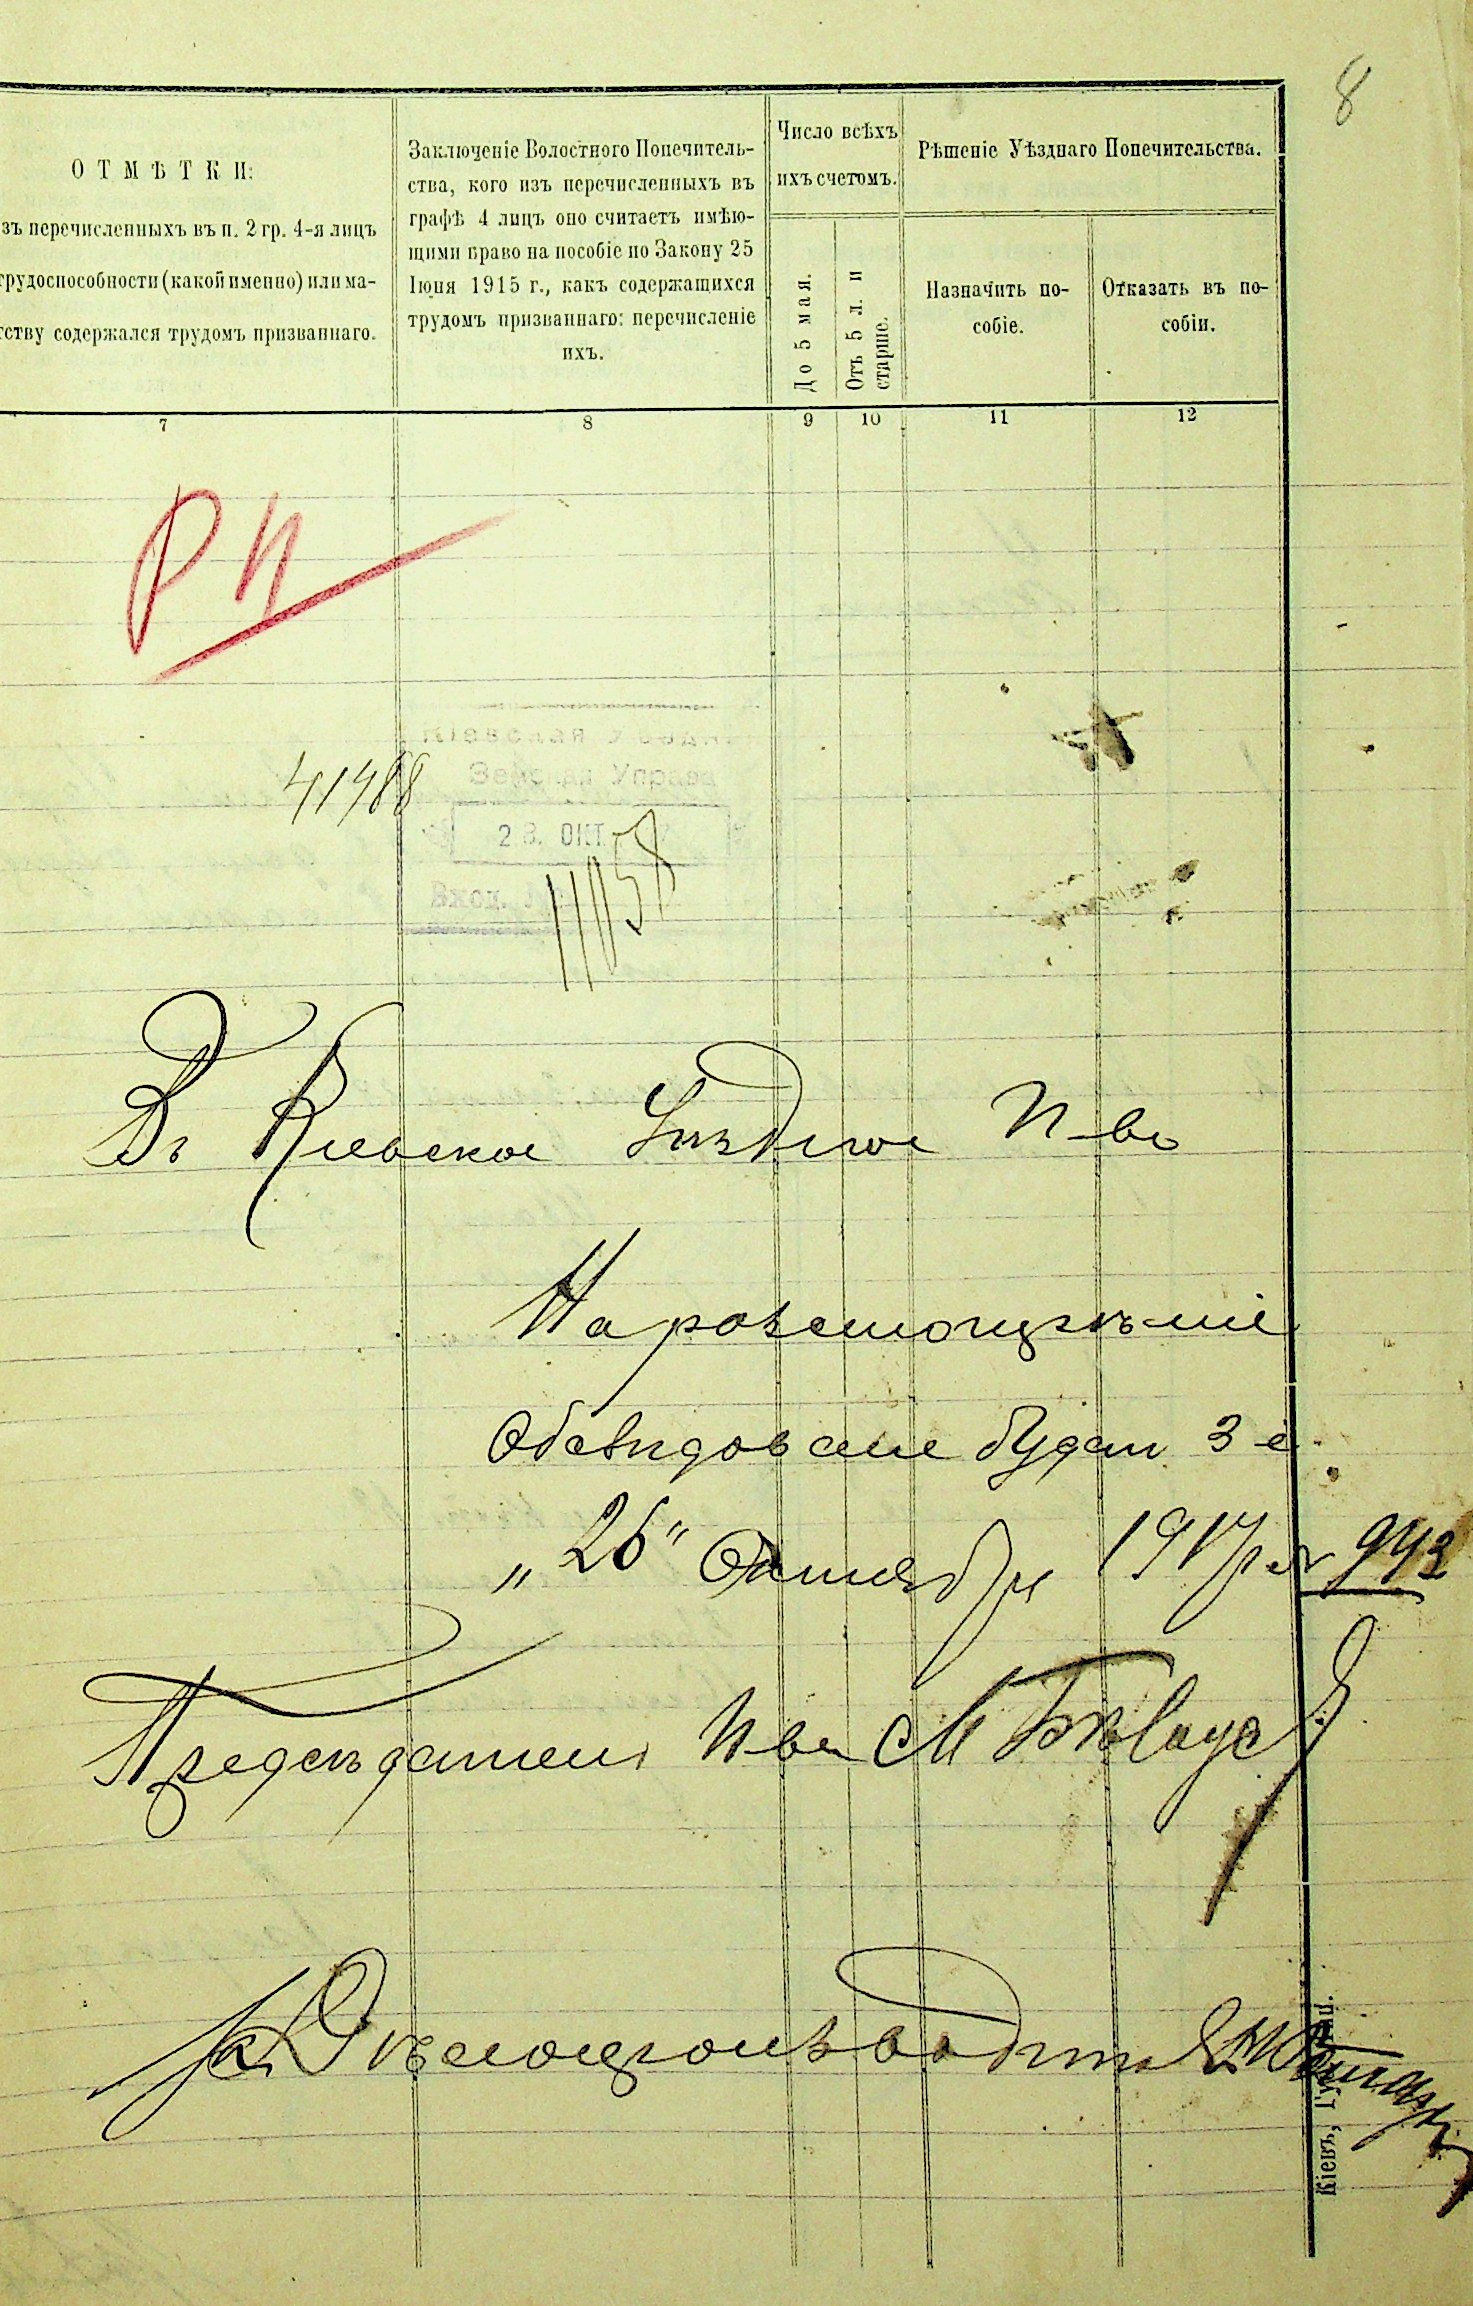 8
ОТМѢТКИ:
зъ перечисленныхъ въ п. 2 гр. 4-я лицъ
трудоспособности (какой именно) или ма-
тству содержался трудомъ призваннаго.
Заключеніе Волостного Попечитель-
ства, кого изъ перечисленныхъ въ
графѣ 4 лицъ оно считаетъ имѣю-
щими право на пособіе по Закону 25
Іюня 1915 г., какъ содержащихся
трудомъ призваннаго: перечисленіе
ихъ.
Число всѣхъ
ихъ счетомъ.
До 5 мая.
Отъ 5 л. и
старше.
Рѣшеніе Уѣзднаго Попечительства.
Назначить по-
собіе.
Отказать въ по-
собіи.
7 8 9 10 11 12
РП
41488
Кіевская Уѣздн
Земская Управа
28. ОКТ
Вход. №
11058
Въ Киевское Уѣздное П-во
На
будет 3-е
„26" Октября 1917 г № 943
Председатель П-ва М Бѣлоус
Дѣлопроизводитель
Кіевъ,